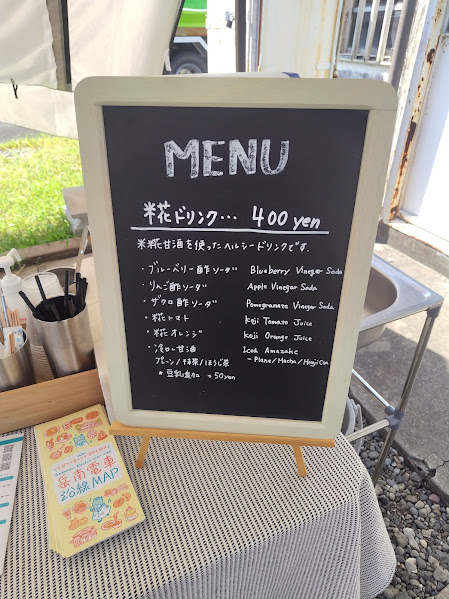 MENU
糀ドリンク… 400 yen
米糀甘酒を使ったヘルシードリンクです.
・ブルーベリー酢ソーダ Blueberry Vinegar Soda
・りんご酢ソーダ Apple Vinegar Soda
・ザクロ酢ソーダ Pomegranate Vinegar Soda
・糀トマト Koji Tomato Juice
・糀オレンジ Koji Orange Juice
・冷やし甘酒 Iced Amazake
プレーン/抹茶/ほうじ茶 -Plane/Matcha/Houji Cha
※豆乳追加 +50yen
岳南電車
沿線MAP